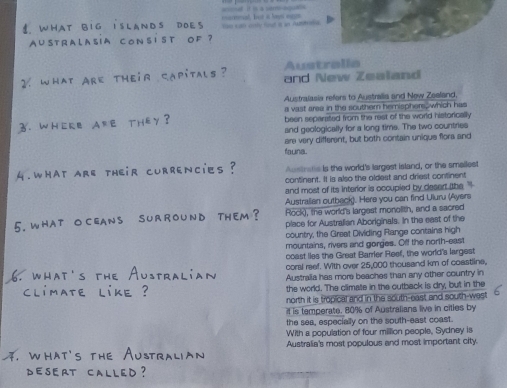 1. WHAT BIG ISLANDS DOES
AUSTRALASIA CONSIST OF?
2. WHAT ARE THEIR CAPITALS?
3. WHERE ARE THEY?
4. WHAT ARE THEIR CURRENCIES?
5. WHAT OCEANS SURROUND THEM?
6. WHAT'S THE AUSTRALIAN
CLIMATE LIKE?
7. WHAT'S THE AUSTRALIAN
DESERT CALLED?
Australia
and New Zealand
Australasia refers to Australia and New Zealand,
a vast area in the southern hemisphere, which has
been separated from the rest of the world historically
and geologically for a long time. The two countries
are very different, but both contain unique flora and
fauna.
Australia is the world's largest island, or the smallest
continent. It is also the oldest and driest continent
and most of its interior is occupied by desert (the
Australian outback). Here you can find Uluru (Ayers
Rock), the world's largest monolith, and a sacred
place for Australian Aboriginals. In the east of the
country, the Great Dividing Range contains high
mountains, rivers and gorges. Off the north-east
coast lies the Great Barrier Reef, the world's largest
coral reef. With over 25,000 thousand km of coastline,
Australia has more beaches than any other country in
the world. The climate in the outback is dry, but in the
north it is tropical and in the south-east and south-west 6
it is temperate. 80% of Australians live in cities by
the sea, especially on the south-east coast.
With a population of four million people, Sydney is
Australia's most populous and most important city.